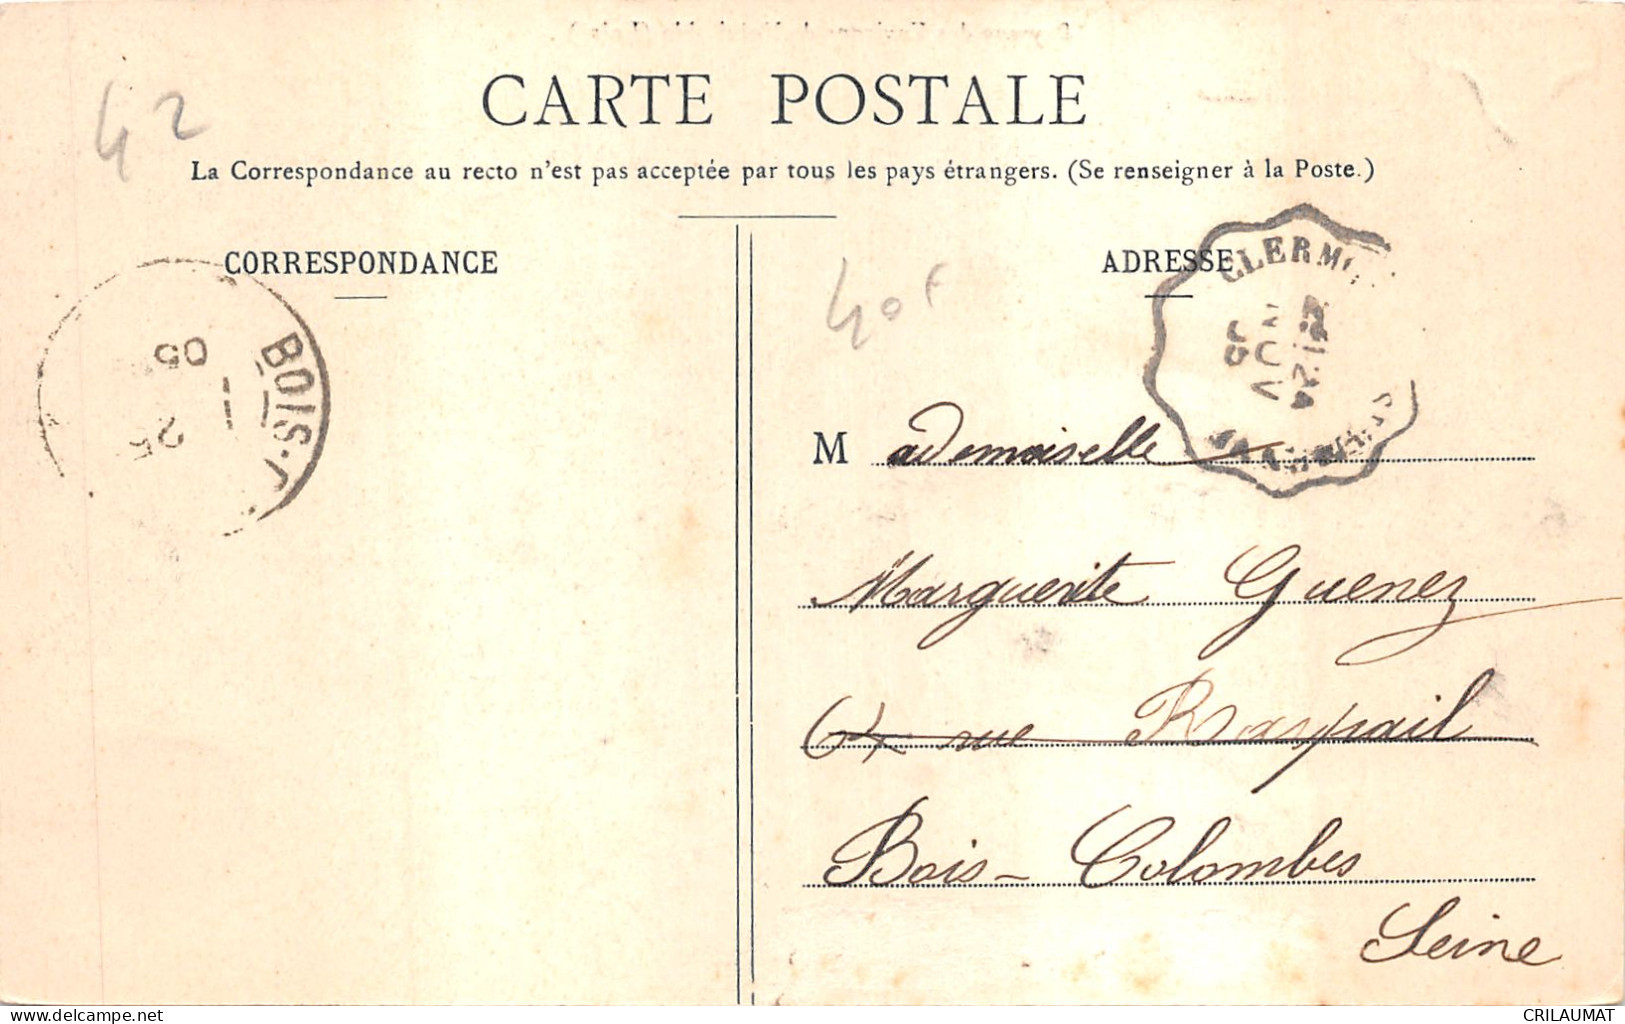 CARTE POSTALE
42
La Correspondance au recto n'est pas acceptée par tous les pays étrangers. (Se renseigner à la Poste.)
CORRESPONDANCE
ADRESSE
CLERM
NOV
05
BOIS-C
05
25
40f
Mademoiselle
Marguerite Guenez
64 rue Raspail
Bois-Colombes
Seine
www.delcampe.net
CRILAUMAT